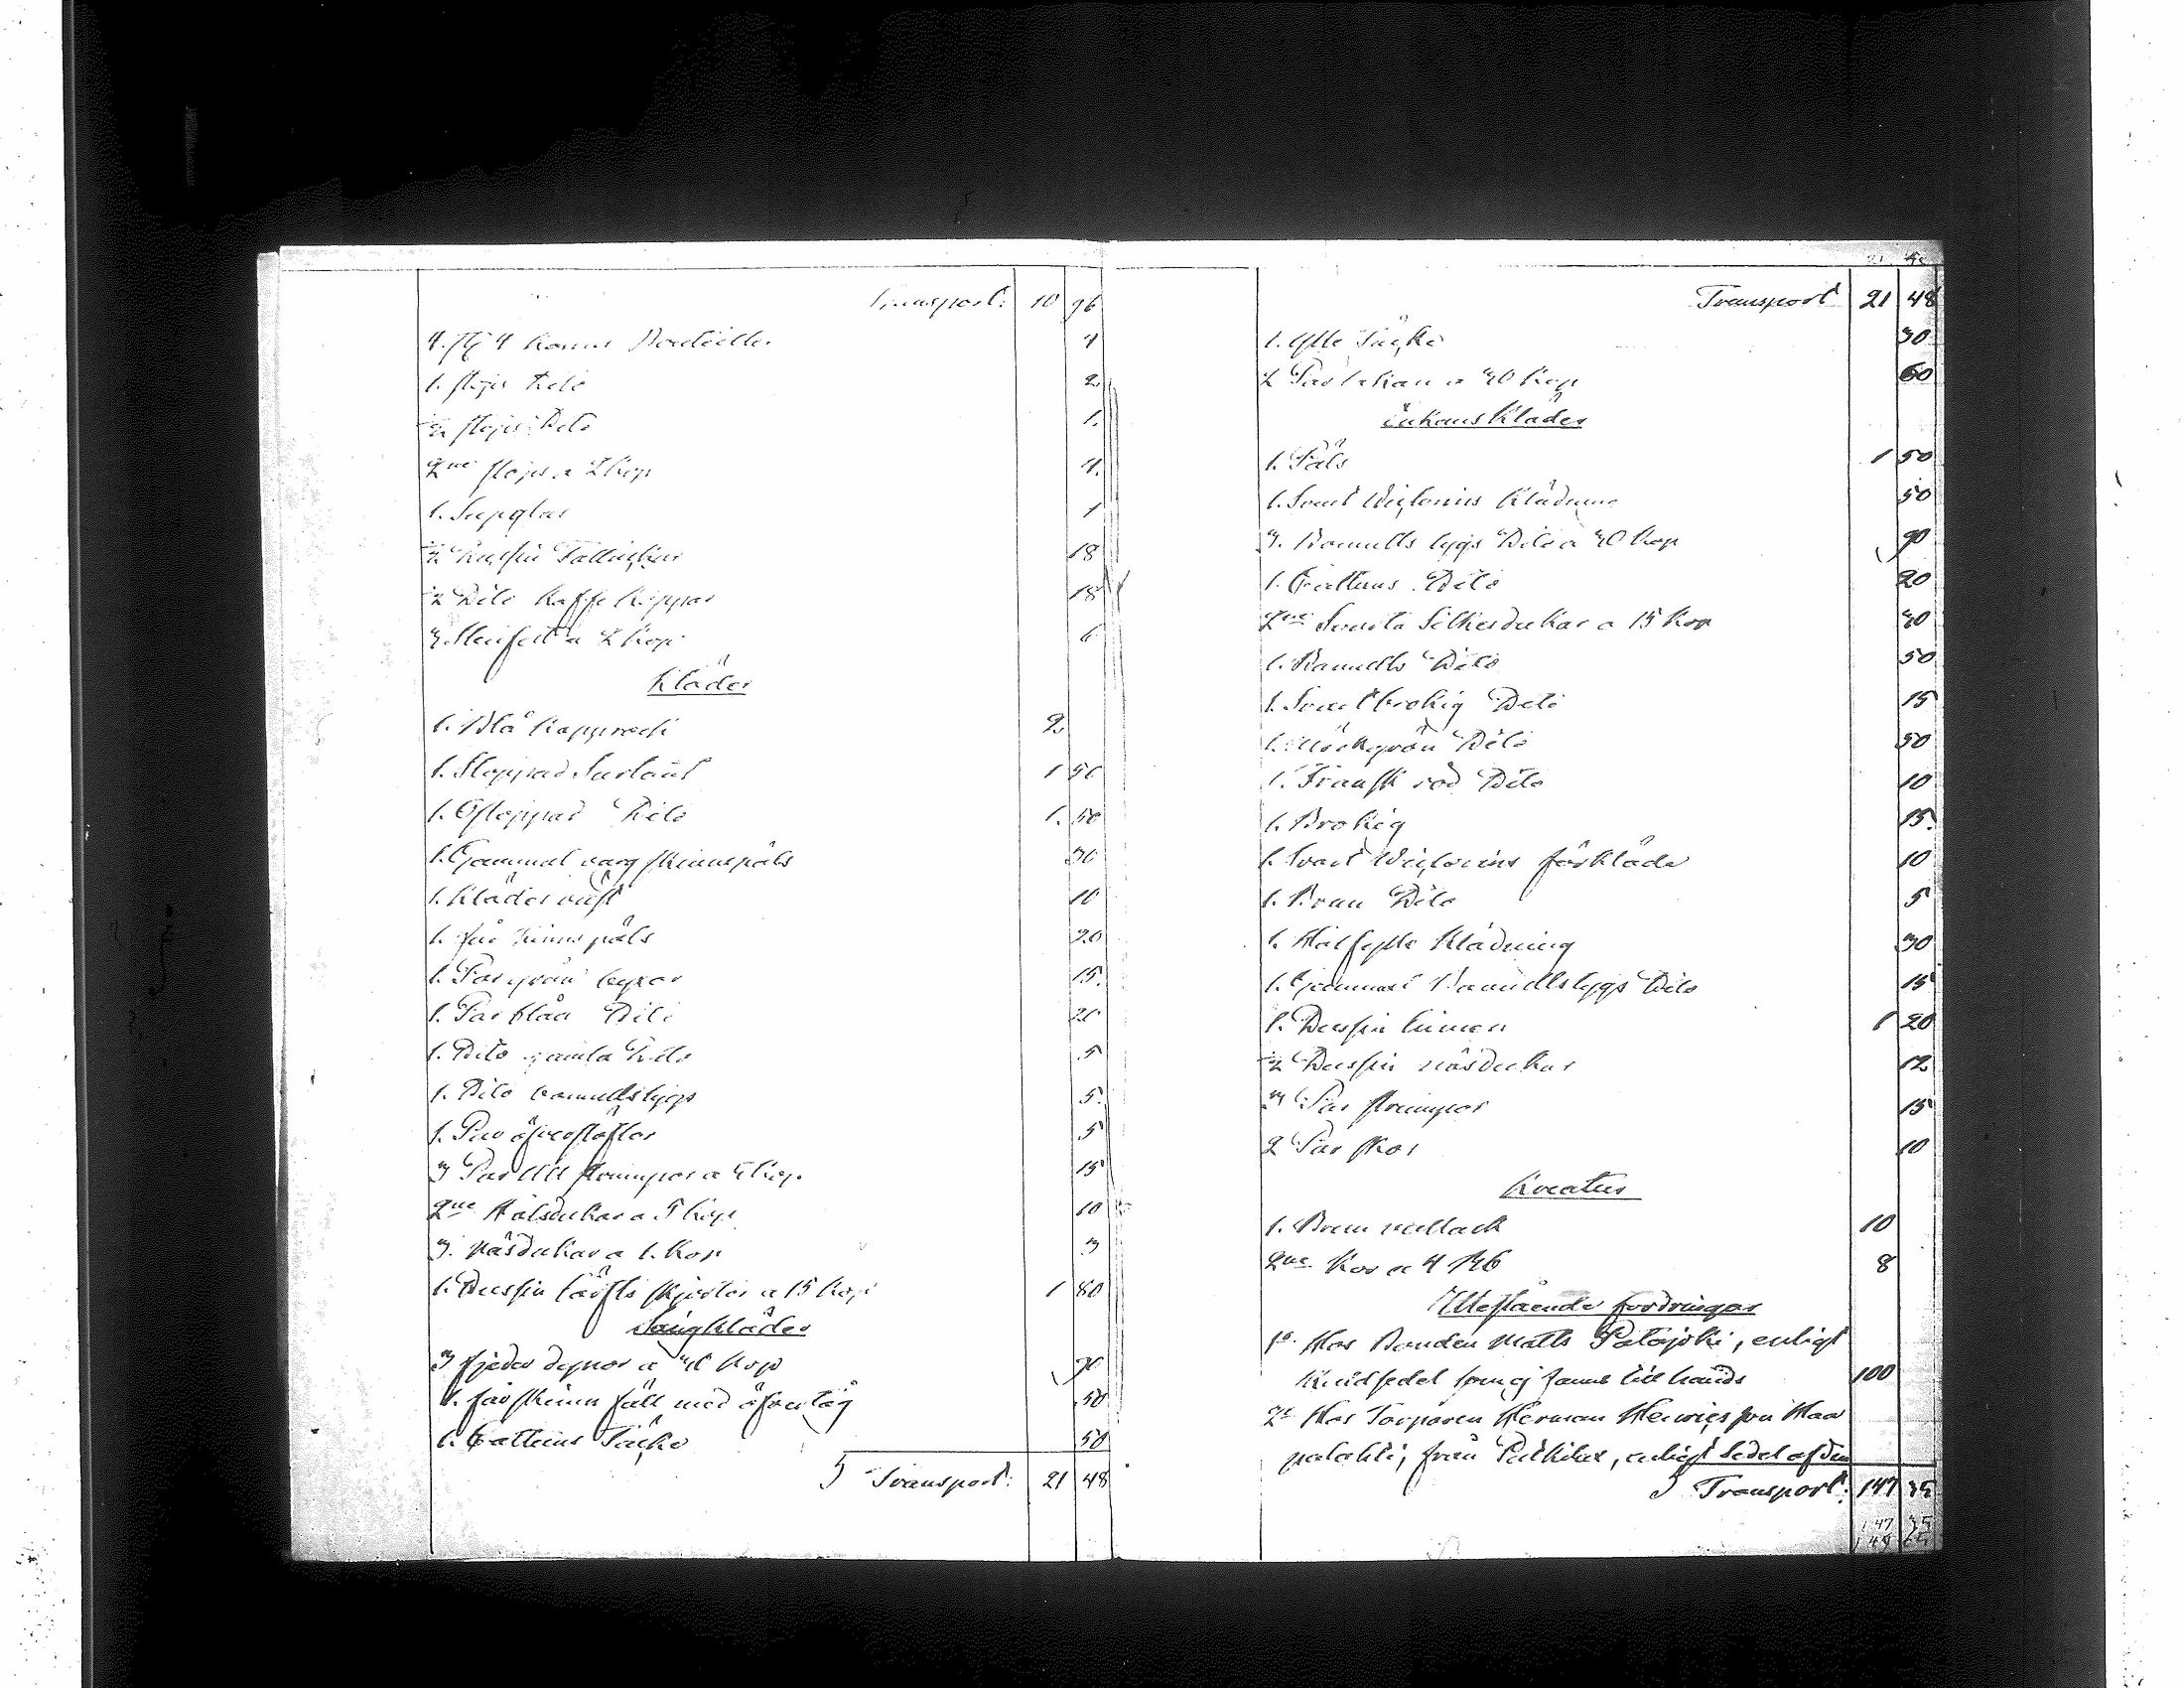 Transport: 10 96
4. st 4 kanns Bouteiller 4
1. stops Dito 2
1/2 stops Dito 1.
2ne stops a 2 kop 4.
1. Supglas 1
1/2 Dussin Tallrickar 18
1/2 Dito Kaffe koppar 18
3. Stenfat a 2 kop 6
Kläder
1. Blå kapprock 2
1. Stoppad Surtout 1 50
1. Ostoppad Dito 1. 50
1. Gammal vargskinnspäls 30
1. Klädes väst 10
1. får skinns päls 20
1. Par gråa byxor 15.
1. Par blåa Dito 20
1. Dito gamla Dito 5
1. Dito bomullstygs 5.
1. Par öfverstöflor 5
3 Par ull strumpor a 5 kop. 15
2ne Halsdukar a 5 kop 10
3. näsdukar a 1. Kop 3
1. Dussin lärfts skjortor a 15 kop 1 80
Sängkläder
3 fjeder dynor a 30 kop 90
1. fårskinns fäll med öfvertåg 50
1. Cattuns Täcke 50
Transport: 21 48
Transport 21 48
1. Ylle Täcke 30
2 Par lakan a 30 kop 60
Enkans Kläder
1. Päls 1 50
1. Svart Klädning 50
3. Bomulls tygs Dito a 30 kop 90
1. Cattuns Dito 20
2ne Svarta Silkesdukar a 15 kop 30
1. Bomulls Dito 50
1. Svartbrokig Dito 15
1. Mörkgrön Dito 50
1. Fransk röd Dito 10
1. Brokig 15.
1. Svart förkläde 10
1. Brun Dito 5
1. Halfylle Klädning 30
1. Gammal Bomullstygs Dito 15
1. Dussin Linnen 1 20
1/2 Dussin näsdukar 12
3 Par strumpor 15
2 Par skor 10
Kreatur
1. Brun vallack 10
2ne Kor a 4 Rub 8
Utestående fordringar
1o. Hos Bonden Matts Patajoki, enligt
skuldsedel som ej fanns till hands 100
2o Hos Torparen Herman Henricsson Haa
palahti, från Pulkila, enligt Sedel af den
Transport: 147 35
147 35